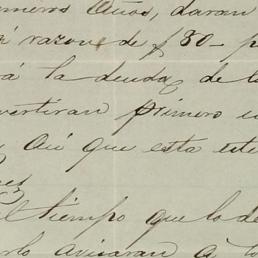 meros Años, daran
razon de $80- p
á la deuda de l
vertiran primero e
Asi que esta este
es
l tiempo que lo de
rlo avisaran á lo